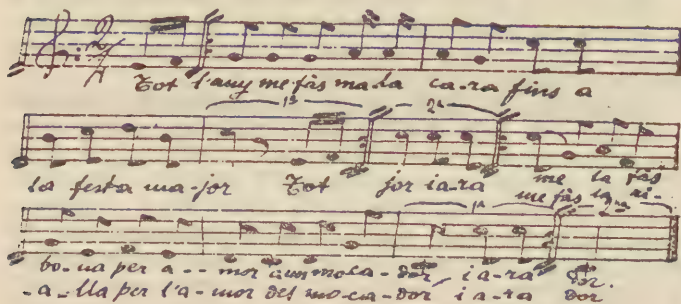 2/4
Tot l'any me fás mala ca-ra fins a
1ª 2ª
la festa ma-jor Tot jor ia-ra me la fás
me fás la ri-
1ª 2ª
bo-na per a--mor moca-dor, ia-ra dor.
-a-lla per l'a-mor del mo-ca-dor, i a-ra dor